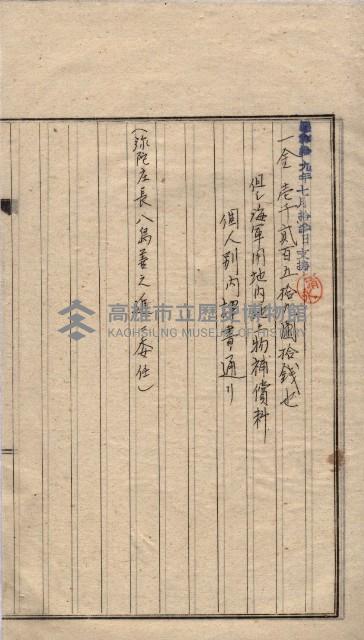 昭和拾九年七月拾日支拂
一金 壱千貳百五拾九圓拾錢也
但シ海軍用地内地上物補償料
個人別内認書通リ
(弥陀庄長八島善之進委任)
高雄市立歷史博物館
KAOHSIUNG MUSEUM OF HISTORY